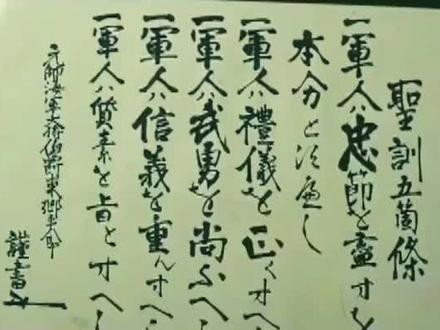 聖訓五箇條
一軍人ハ忠節を盡すを
本分と須へし
一軍人ハ禮儀を正くすへ
一軍人ハ武勇を尚ふへ
一軍人ハ信義を重んすへ
一軍人ハ質素を旨とすへし
元帥海軍大将伯爵東郷平八郎
謹書